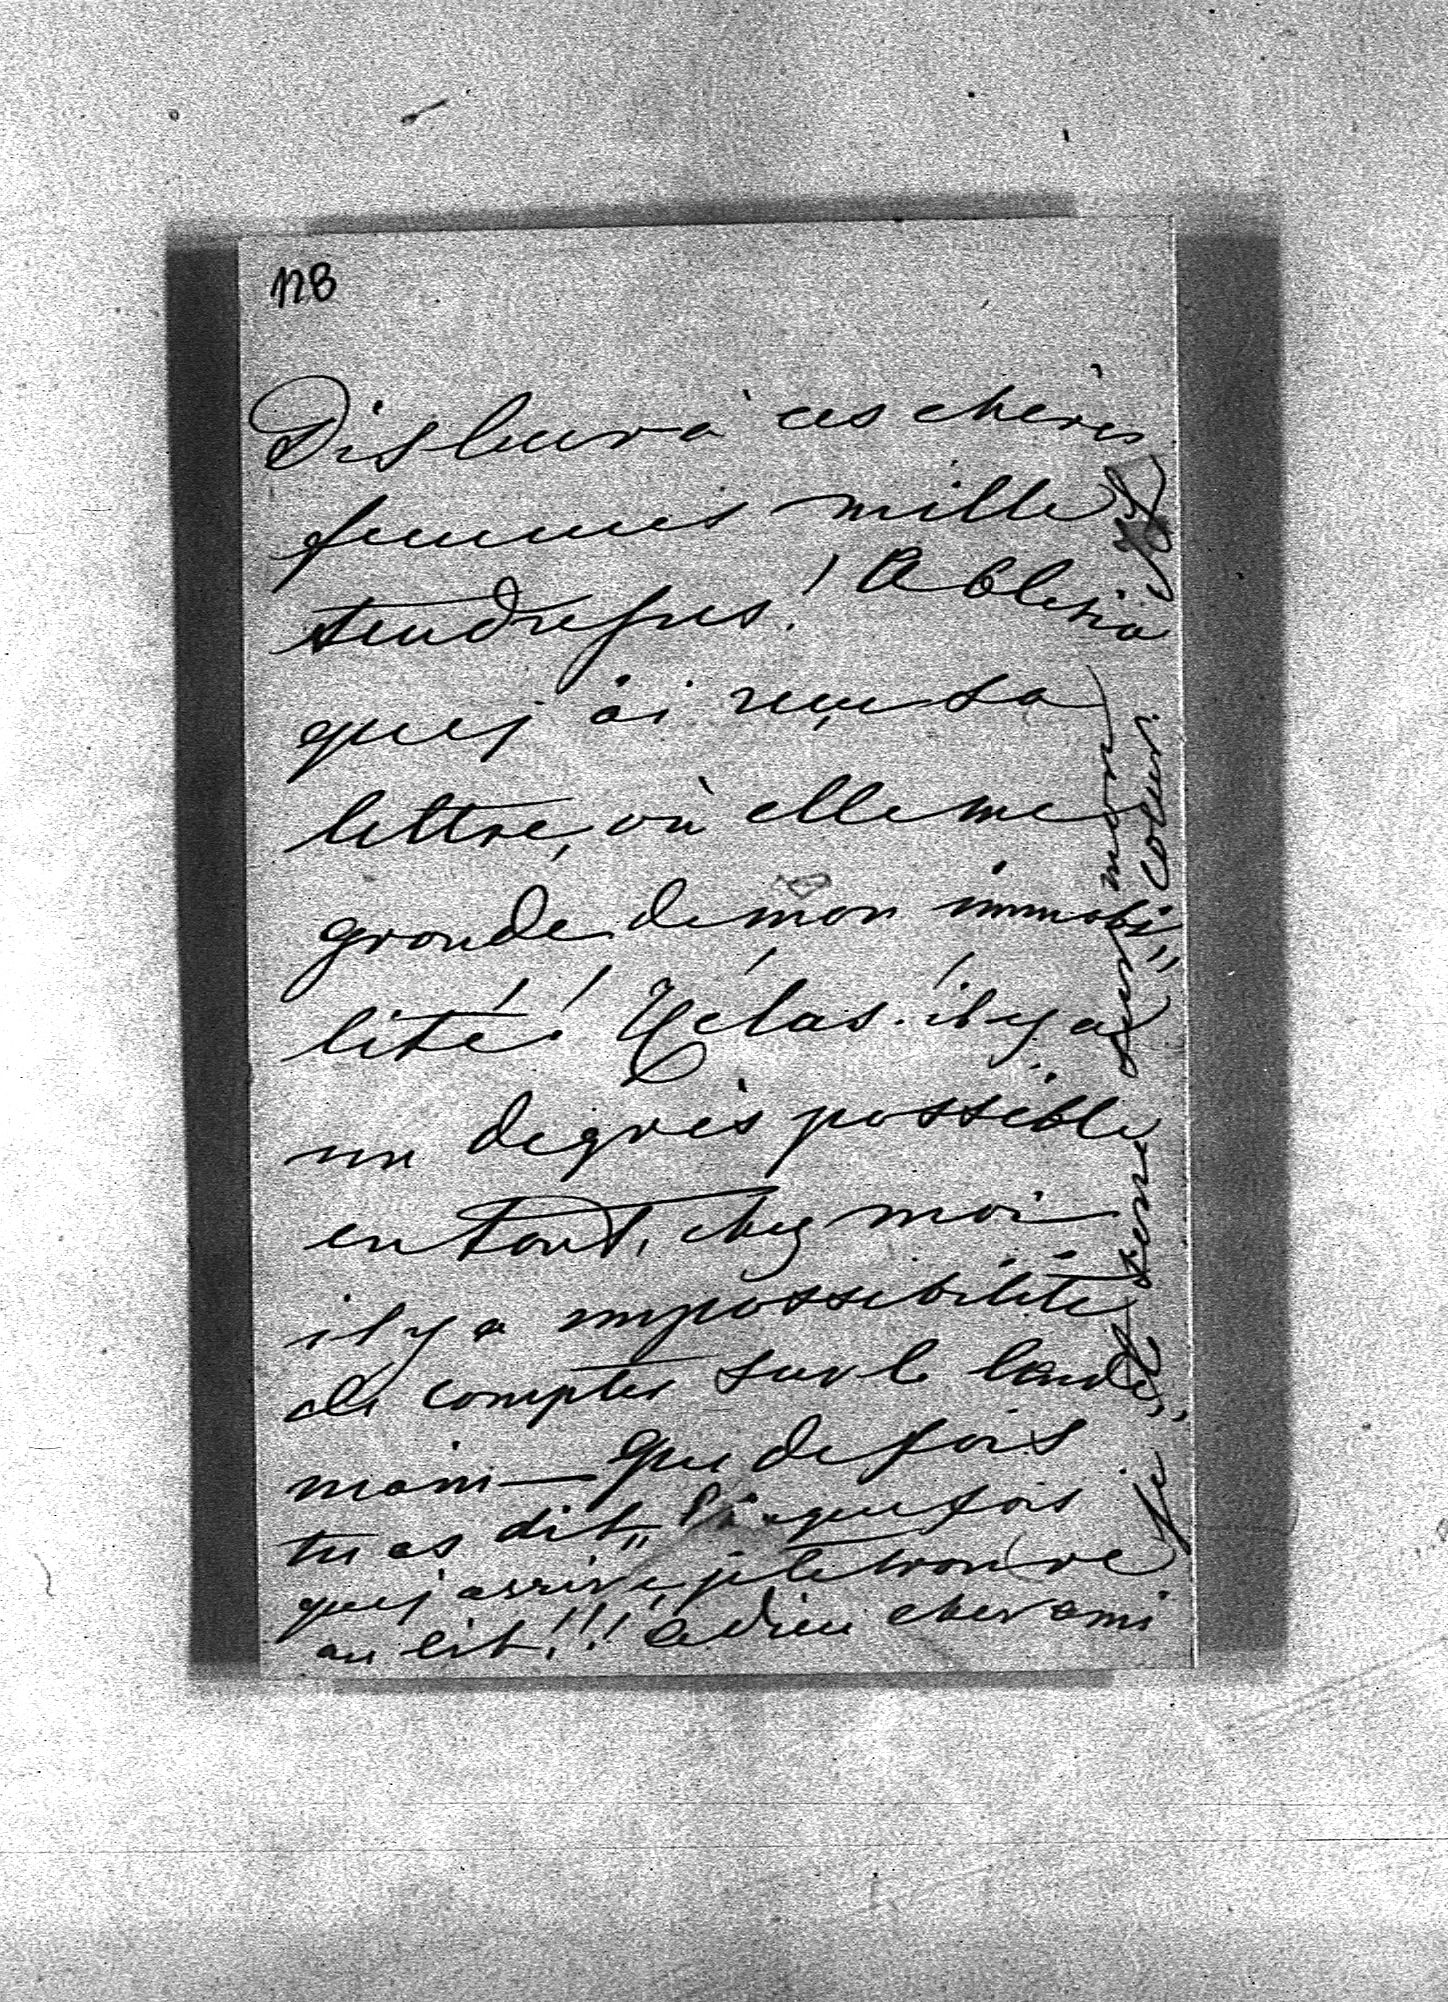 128
Dis leur à ces chères
femmes mille
tendresses! A Clelia
que j'ai reçu sa
lettre, où elle me
gronde de mon immobi"
lité! Hélas! il y a
un degrès possible
en tout, chez moi
il y a impossibilité
de compter sur le lende"
main — que de fois
tu as dit " que fois
que j'arrive, je te trouve
au lit!!! adieu cher ami
je te serre sur mon
coeur.